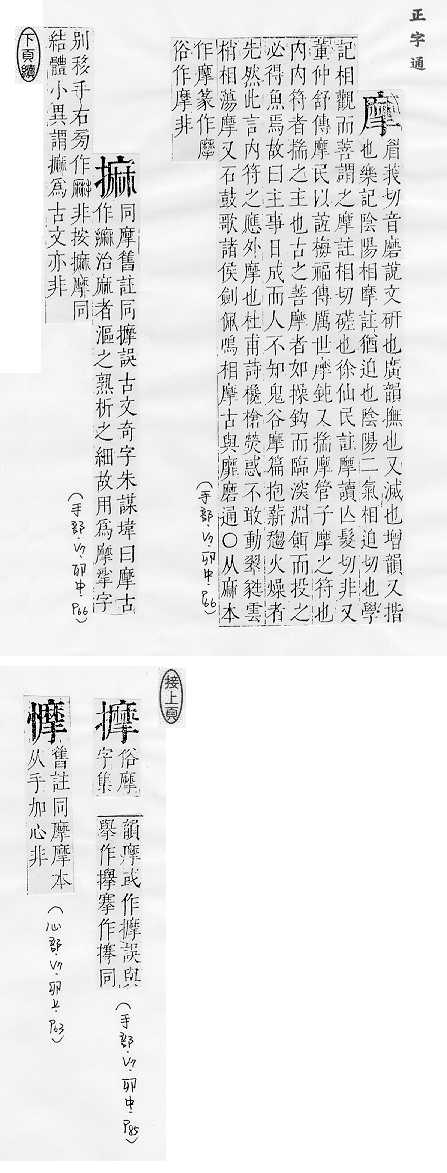 正字通
摩 眉莪切音磨說文研也廣韻撫也又滅也增韻又揩
也樂記陰陽相摩註猶迫也陰陽二氣相迫切也學
記相觀而善謂之摩註相切磋也徐仙民註摩讀亾髮切非又
董仲舒傳摩民以誼梅福傳厲世摩鈍又揣摩管子摩之符也
内内符者揣之主也古之善摩者如操鈎而臨深淵餌而投之
必得魚焉故曰主事日成而人不知鬼谷摩篇抱薪趨火燥者
先然此言内符之應外摩也杜甫詩欃槍熒惑不敢動翠蕤雲
梢相蕩摩又石鼓歌諸侯劍佩鳴相摩古與靡磨通〇从麻本
作摩篆作
俗作摩非
(手部.V7.卯中.P66)
𢱢 同摩舊註同擵誤古文奇字朱謀㙔曰摩古
作𢱢治麻者漚之熟析之細故用為摩挲字
(手部.V7.卯中.P66)
別移手右旁作非按𢱢摩同
結體小異謂𢱢為古文亦非
下頁續
接上頁
擵 俗摩
字集
韻摩或作擵誤與
舉作擧搴作同
(手部.V7.卯中.P85)
舊註同摩摩本
从手加心非
(心部.V7.卯上.P63)